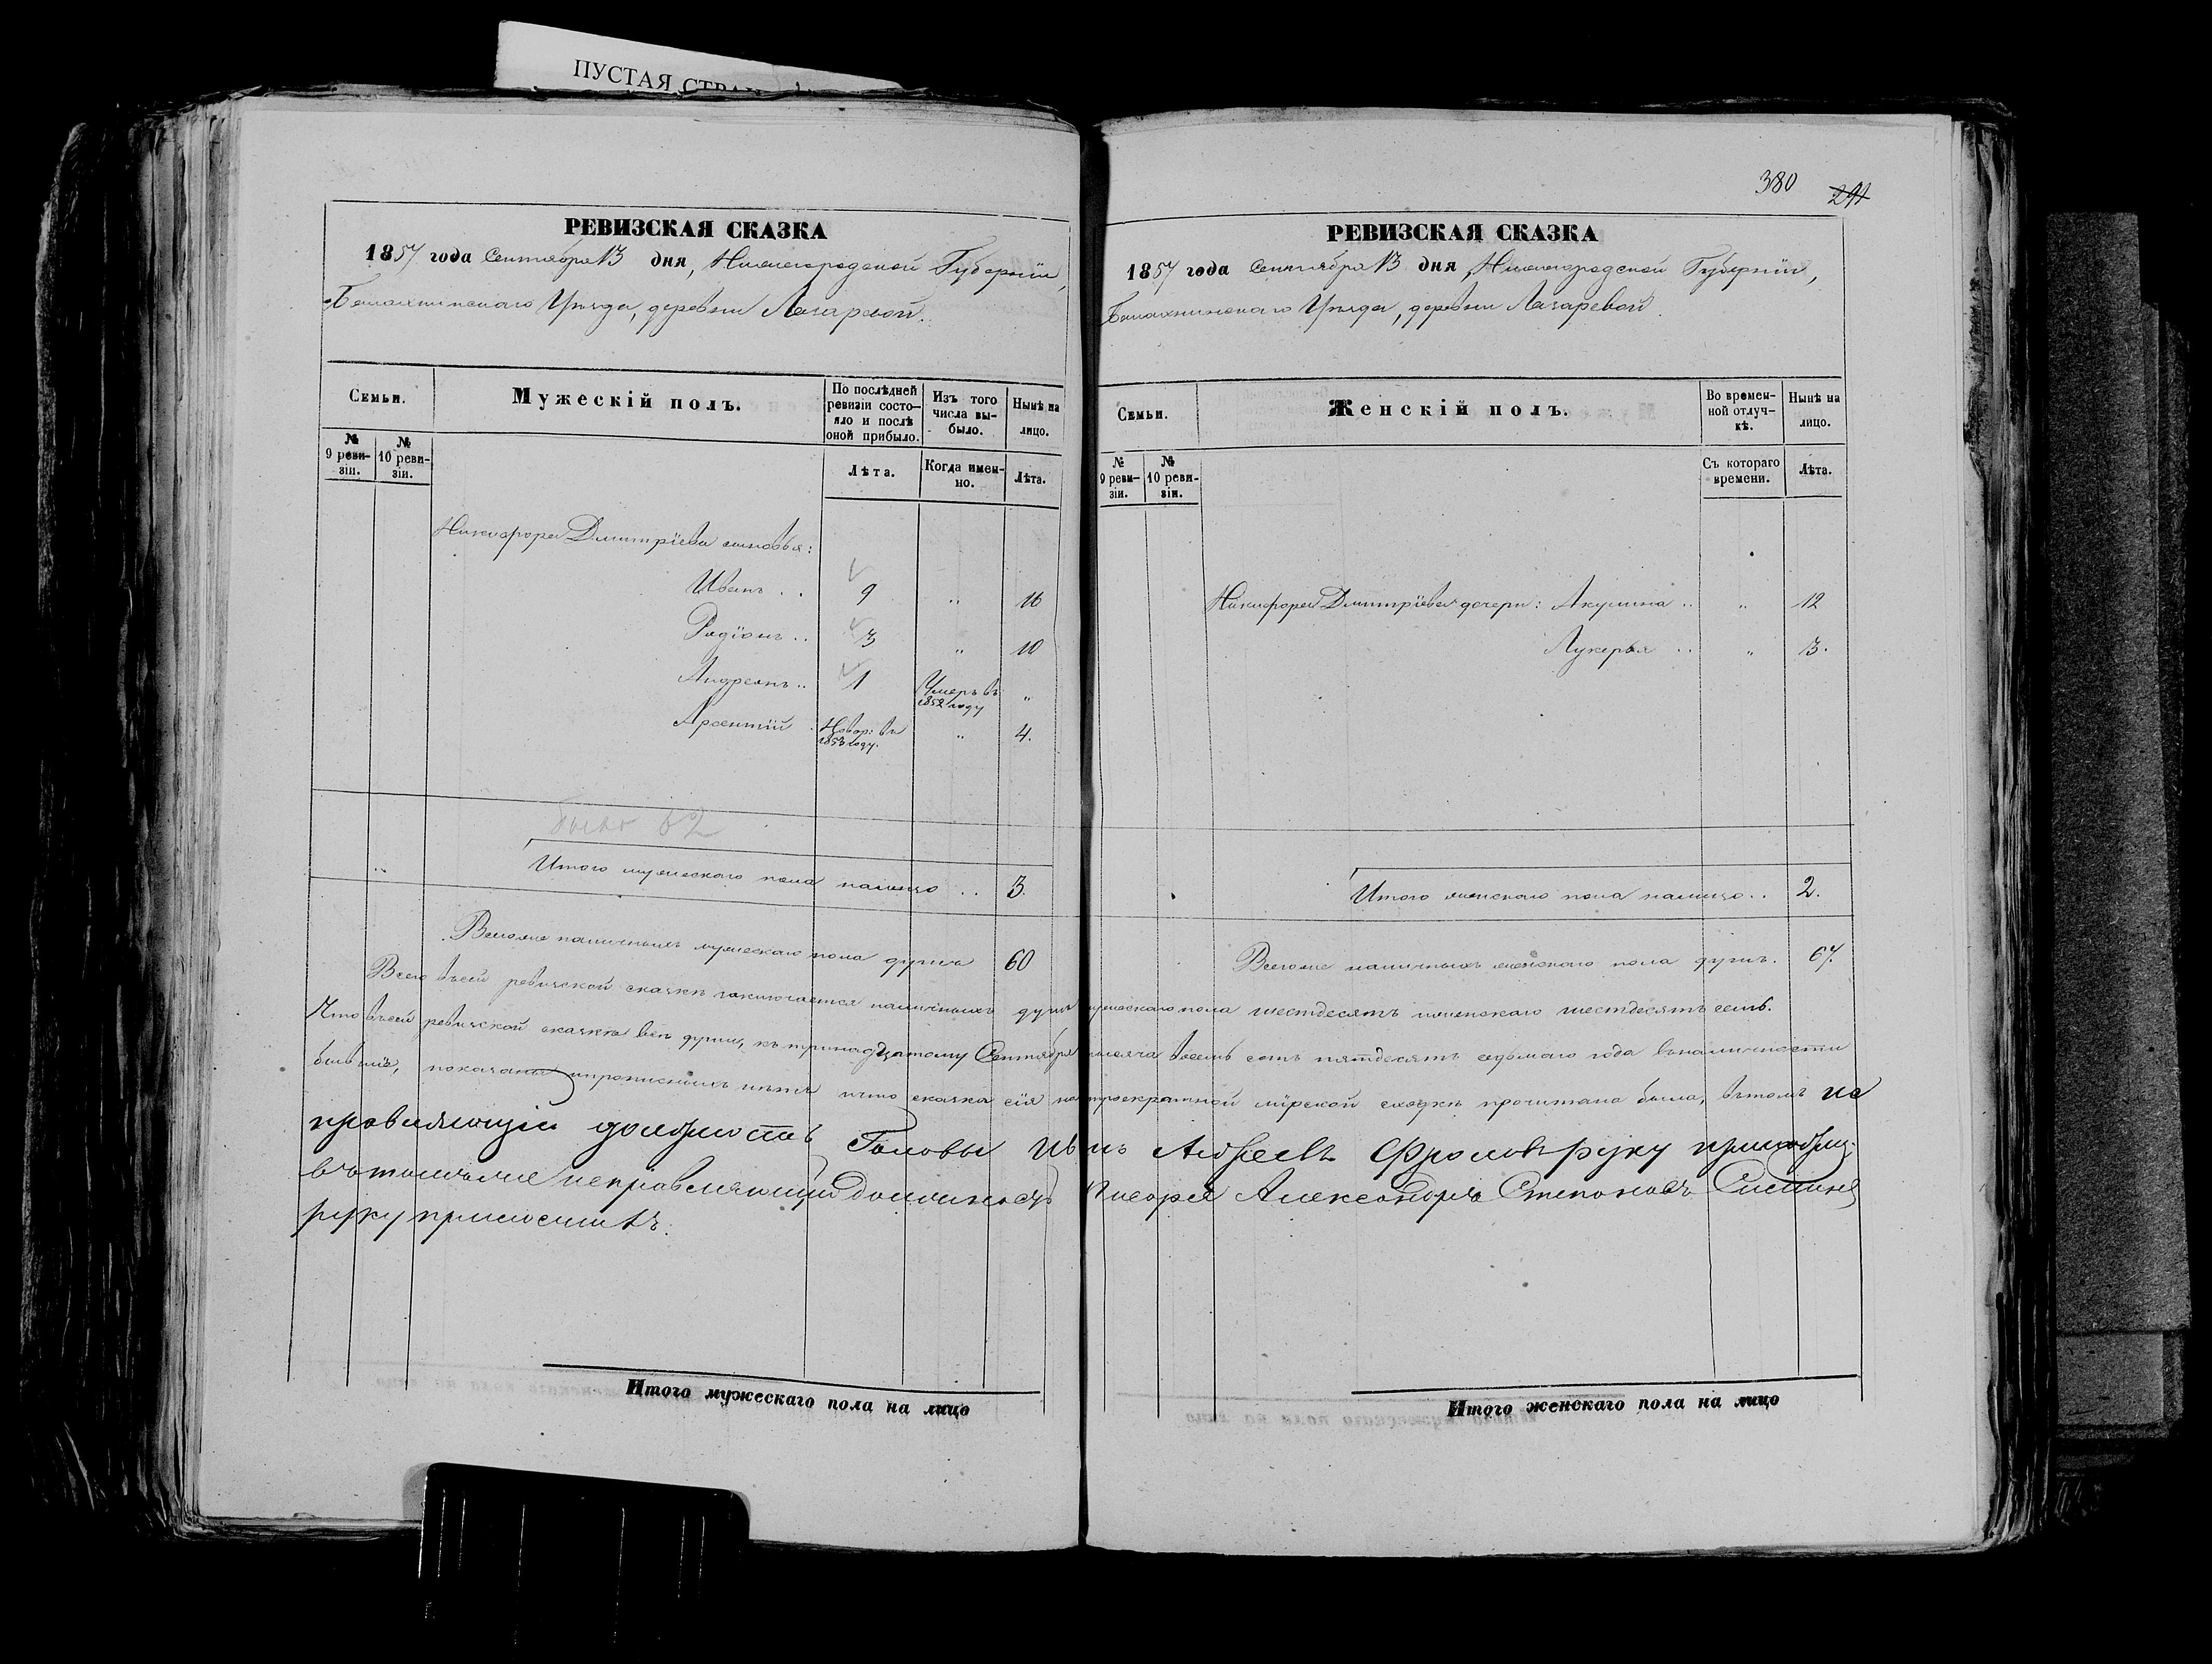 ПУСТАЯ СТРАН
380 291
РЕВИЗСКАЯ СКАЗКА
1857 года Сентября 13 дня, Нижегородской Губерніи,
Балахнинскаго Уѣзда, деревни Лазаревой.
Семьи.
Мужескій полъ.
По послѣдней ревизіи состояло и послѣ оной прибыло.
Изъ того числа выбыло.
Нынѣ на лицо.
№ 9 ревизіи.
№ 10 ревизіи.
Лѣта.
Когда именно.
Лѣта.
Никифора Дмитріева сыновья:
Иванъ . . 9 " 16
Родіонъ . . 3 " 10
Андреянъ . . 1 Умеръ въ 1852 году "
Арсентій . Новор: въ 1853 году. " 4.
было 62
Итого мужескаго пола налицо . . 3.
Всего же наличныхъ мужескаго пола душъ 60
РЕВИЗСКАЯ СКАЗКА
1857 года Сентября 13 дня Нижегородской Губерніи,
Балахнинскаго Уѣзда, деревни Лазаревой.
Семьи.
Женскій полъ.
Во временной отлучкѣ.
Нынѣ на лицо.
№ 9 ревизіи.
№ 10 ревизіи.
Съ котораго времени.
Лѣта.
Никифора Дмитріева дочери: Акулина . . " 12
Лукерья . . " 3.
Итого женскаго пола налицо . . 2.
Всего же наличныхъ женскаго пола душъ. 67.
Всего въ сей ревизской сказкѣ заключается наличныхъ душъ мужескаго пола шестдесятъ женскаго шестдесятъ семь.
Что въ сей ревизской сказкѣ всѣ души, къ тринадцатому Сентября тысяча восемь сотъ пятдесятъ седьмаго года въ наличности
бывшіе, показаны и прописныхъ нѣтъ и что сказка сія на троекратной мірской сходкѣ прочитана была, въ томъ ис
правляющій должность Головы Иванъ Андреевъ Фроловъ руку приложилъ
въ томъ же исправляющій должность Писаря Александръ Степановъ
руку приложилъ.
Итого мужескаго пола на лицо
Итого женскаго пола на лицо